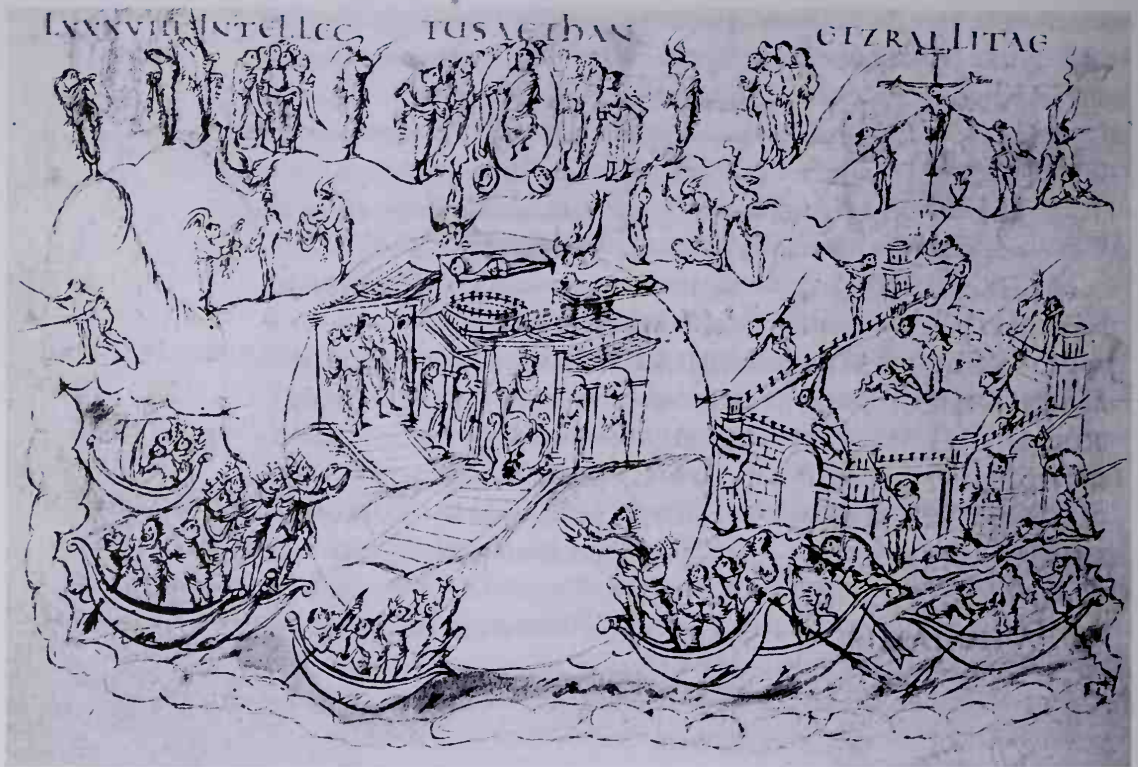 LXXXVIII INTELLEC TUS AETHAN EIZRAHLITAE